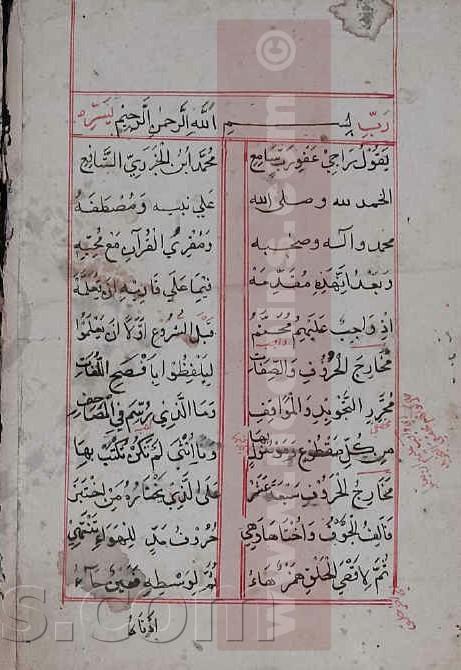 رَبِّ بِسْمِ اللَّهِ الرَّحْمٰنِ الرَّحِيمِ يَسِّرْه
يَقُولُ رَاجِي عَفْوِ رَبٍّ سَامِعِ مُحَمَّدُ ابْنُ الْجَزَرِيِّ الشَّافِعِي
الحمد لله وصلى الله على نبيه ومصطفاه
محمد وآله وصحبه ومقرئ القرآن مع محبه
وبعد ان هذه مقدمه فيما على قارئه ان يعلمه
اذ واجب عليهم محتم قبل الشروع اولا ان يعلموا
مخارج الحروف والصفات ليلفظوا بافصح اللغات
محرر التجويد والمواقف وما الذي رسم في المصاحف
من كل مقطوع وموصول بها وتا انثى لم تكن تكتب بها
مخارج الحروف سبعة عشر على الذي يختاره من اختبر
فالف الجوف واختاها وهي حروف مد للهواء تنتهي
ثم لاقصى الحلق همز هاء ثم لوسطه فعين حاء
ادناه
s.com